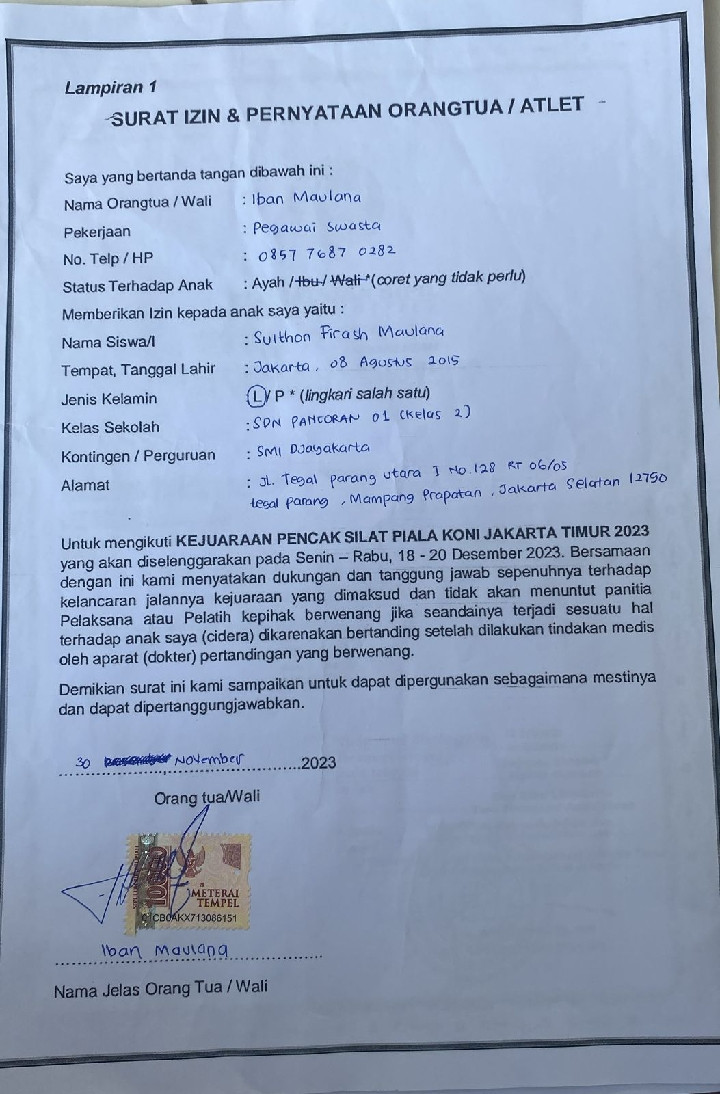 Lampiran 1
SURAT IZIN & PERNYATAAN ORANGTUA / ATLET
Saya yang bertanda tangan dibawah ini :
Nama Orangtua / Wali : Iban Maulana
Pekerjaan : Pegawai Swasta
No. Telp / HP : 0857 7687 0282
Status Terhadap Anak : Ayah / Ibu / Wali *(coret yang tidak perlu)
Memberikan Izin kepada anak saya yaitu :
Nama Siswa/I : Sulthon Firash Maulana
Tempat, Tanggal Lahir : Jakarta, 08 Agustus 2015
Jenis Kelamin : L / P * (lingkari salah satu)
Kelas Sekolah : SDN PANCORAN 01 (Kelas 2)
Kontingen / Perguruan : SMI DJayakarta
Alamat : JL. Tegal parang utara I No.128 RT 06/05
tegal parang, Mampang Prapatan, Jakarta Selatan 12790
Untuk mengikuti KEJUARAAN PENCAK SILAT PIALA KONI JAKARTA TIMUR 2023
yang akan diselenggarakan pada Senin – Rabu, 18 - 20 Desember 2023. Bersamaan
dengan ini kami menyatakan dukungan dan tanggung jawab sepenuhnya terhadap
kelancaran jalannya kejuaraan yang dimaksud dan tidak akan menuntut panitia
Pelaksana atau Pelatih kepihak berwenang jika seandainya terjadi sesuatu hal
terhadap anak saya (cidera) dikarenakan bertanding setelah dilakukan tindakan medis
oleh aparat (dokter) pertandingan yang berwenang.
Demikian surat ini kami sampaikan untuk dapat dipergunakan sebagaimana mestinya
dan dapat dipertanggungjawabkan.
30 November 2023
Orang tua/Wali
10000
METERAI
TEMPEL
CB0AKX713086151
Iban Maulana
Nama Jelas Orang Tua / Wali